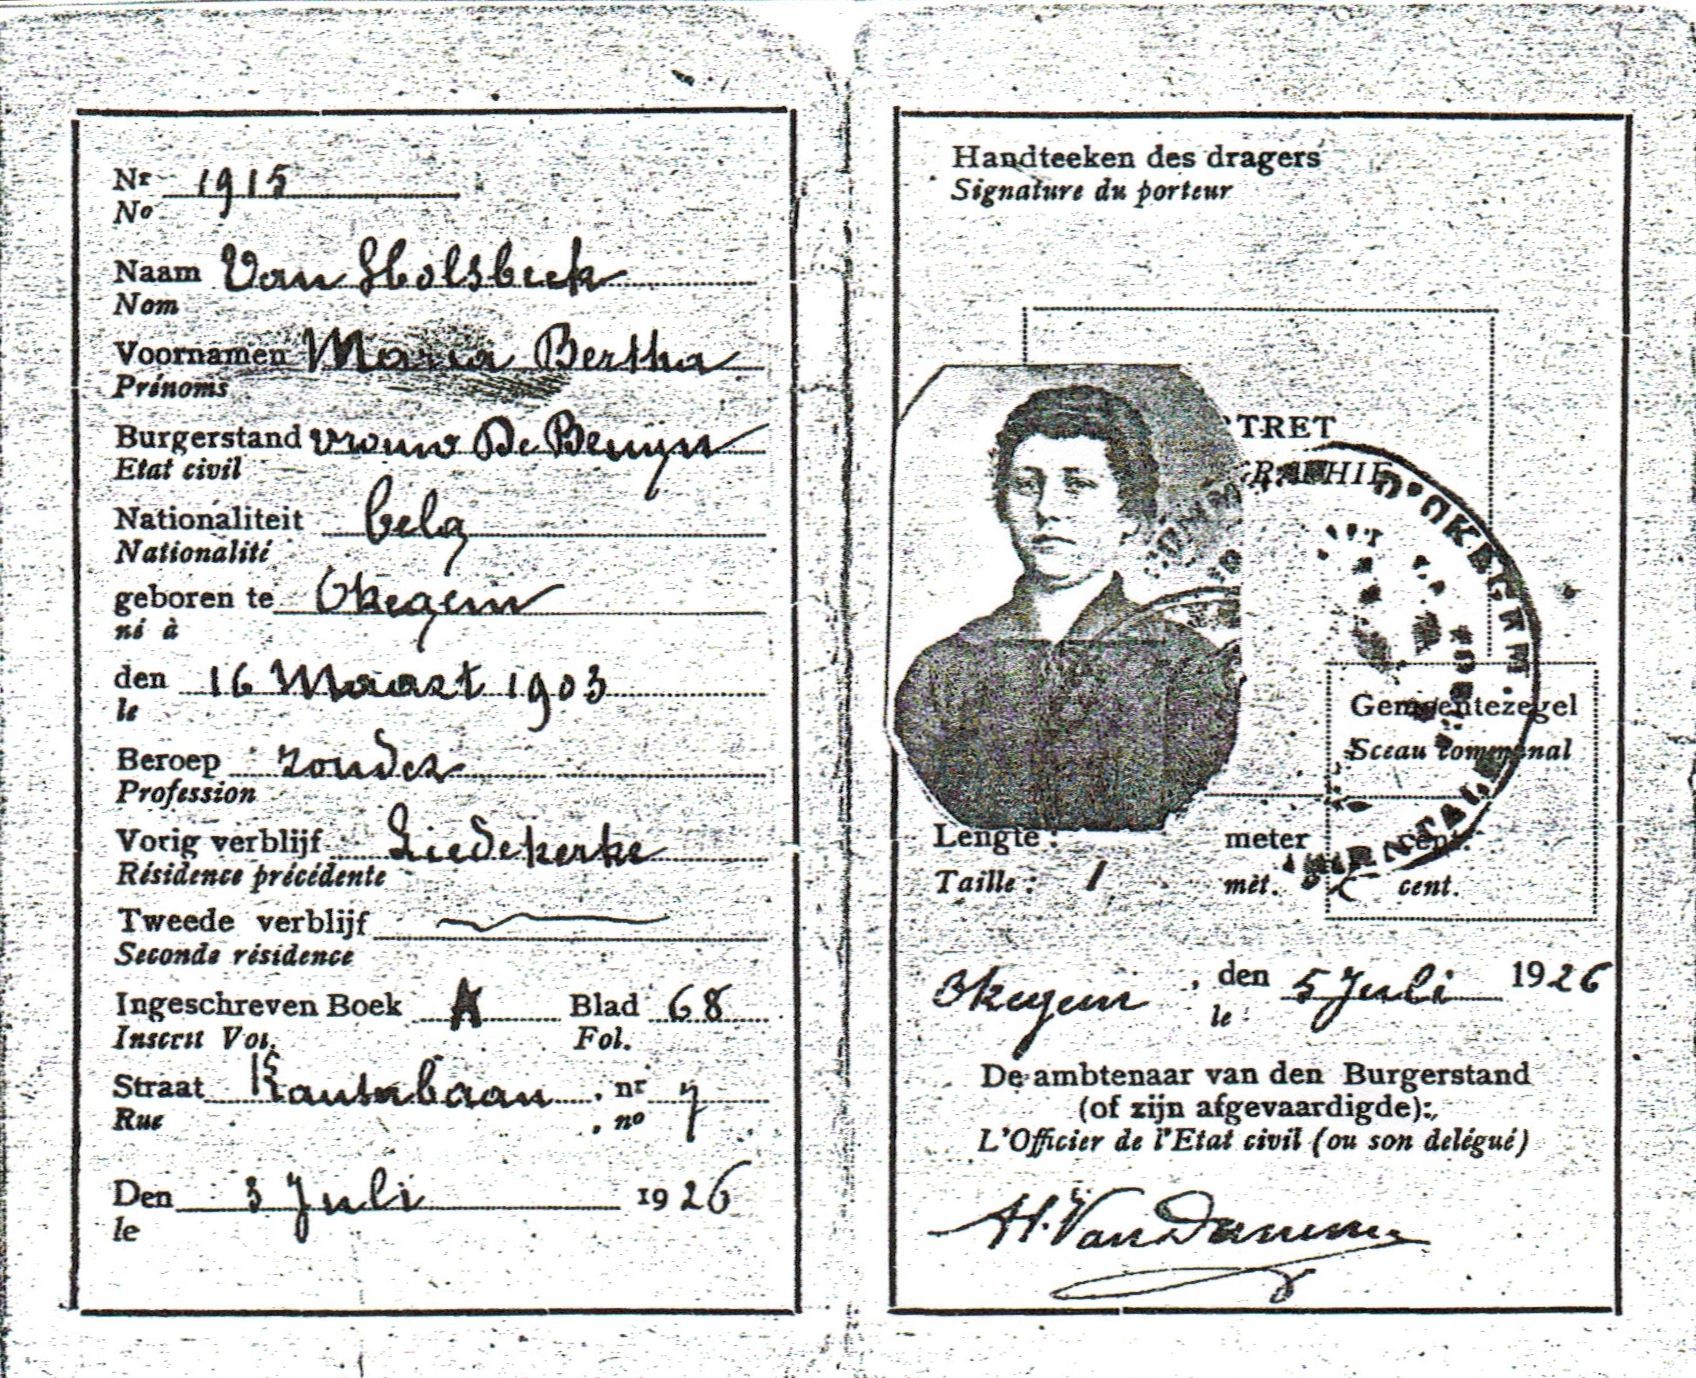 Nr 1915
No
Naam Van Holsbeek
Nom
Voornamen Maria Bertha
Prénoms
Burgerstand vrouw De Bruyn
Etat civil
Nationaliteit belg
Nationalité
geboren te Okegem
né à
den 16 Maart 1903
le
Beroep zonder
Profession
Vorig verblijf Liedekerke
Résidence précédente
Tweede verblijf
Seconde résidence
Ingeschreven Boek A Blad 68
Inscrit Vol. Fol.
Straat baan, nr 7
Rue , no
Den 3 Juli 1926
le
Handteeken des dragers
Signature du porteur
TRET
GRAPHIE
D'OKEGEM
Gemeentezegel
Sceau communal
Lengte : meter cent.
Taille : 1 mèt. cent.
Okegem, den 5 Juli 1926
le
De ambtenaar van den Burgerstand
(of zijn afgevaardigde):
L'Officier de l'Etat civil (ou son delégué)
H. Van Damme